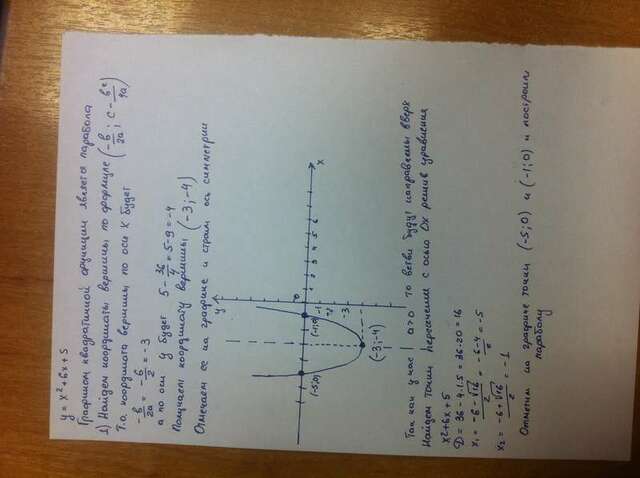 y = x² + 6x + 5
Графиком квадратичной функции является парабола
1) Найдем координаты вершины по формуле (-b/2a; c - b²/4a)
Т.о. координата вершины по оси X будет
-b/2a = -6/2 = -3
а по оси y будет 5 - 36/4 = 5 - 9 = -4
Получаем координату вершины (-3; -4)
Отмечаем ее на графике и строим ось симметрии
y
x
0
1 2 3 4 5 6
-1
-2
-3
(-5;0)
(-1;0)
(-3;-4)
Так как у нас a>0 то ветви будут направлены вверх
Найдем точки пересечения с осью Ox решив уравнения
x² + 6x + 5
D = 36 - 4·1·5 = 36 - 20 = 16
x₁ = (-6 - √16)/2 = (-6-4)/2 = -5
x₂ = (-6 + √16)/2 = -1
Отметим на графике точки (-5; 0) и (-1; 0) и построим
параболу